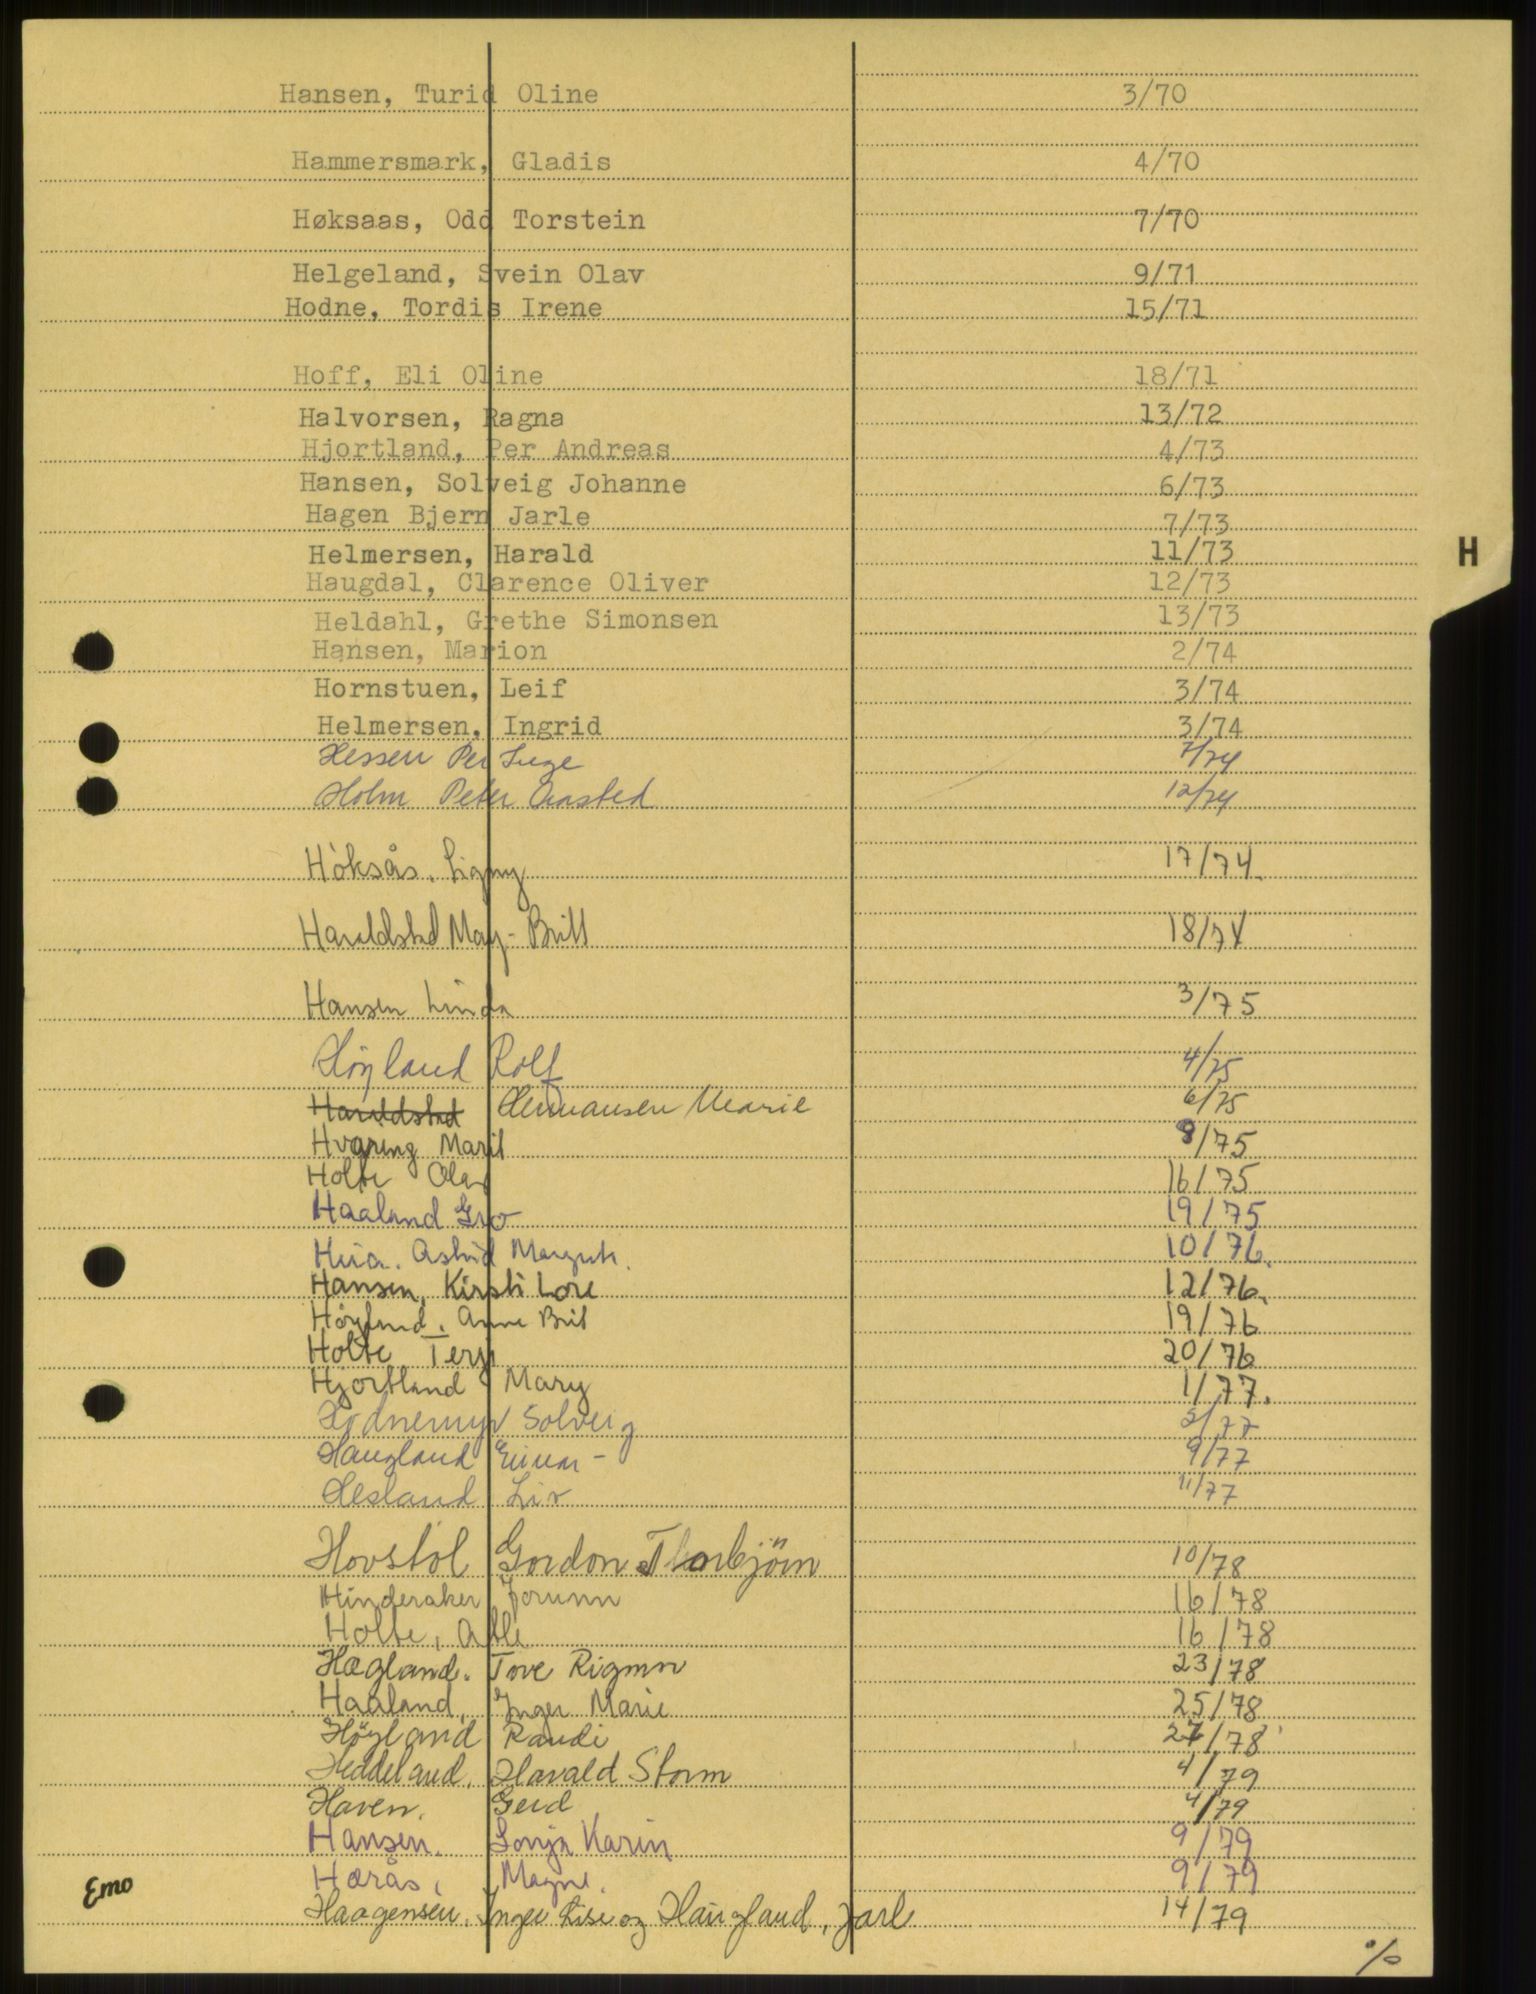 Hansen, Turid Oline 3/70
Hammersmark, Gladis 4/70
Høksaas, Odd Torstein 7/70
Helgeland, Svein Olav 9/71
Hodne, Tordis Irene 15/71
Hoff, Eli Oline 18/71
Halvorsen, Ragna 13/72
Hjortland, Per Andreas 4/73
Hansen, Solveig Johanne 6/73
Hagen Bjern Jarle 7/73
Helmersen, Harald 11/73
H
Haugdal, Clarence Oliver 12/73
Heldahl, Grethe Simonsen 13/73
Hansen, Marion 2/74
Hornstuen, Leif 3/74
Helmersen, Ingrid 3/74
Hessen Per Inge 7/74
Holm Peter 12/74
Höksås. Signy 17/74.
Haraldstad May-Britt 18/74
Hansen Linda 3/75
Höyland Rolf 4/75
Haraldstad Hermansen Marie 6/75
Marit 8/75
Holte Olav 16/75
Haaland Gro 19/75
Astrid 10/76.
Hansen, Kirsti Lore 12/76.
Höylund. Anne Brit 19/76
Holte Terje 20/76
Hjortland Mary 1/77.
Hodnemyr Solveig 5/77
Haugland Einar - 9/77
Hesland Liv 11/77
Hovstöl Gordon Thorbjörn 10/78
Hinderaker Jorunn 16/78
Holte, Atle 16/78
Hægland. Tove Rigmor 23/78
Haaland, Inger Marie 25/78
Höyland Randi /78
Heddeland. Harald Storm 4/79
Haven. Gerd 4/79
Hansen. Sonja Karin 9/79
Hærås, Magne. 9/79
Emo
Haagensen. Inger Lise og Haugland, Jarl 14/79
%